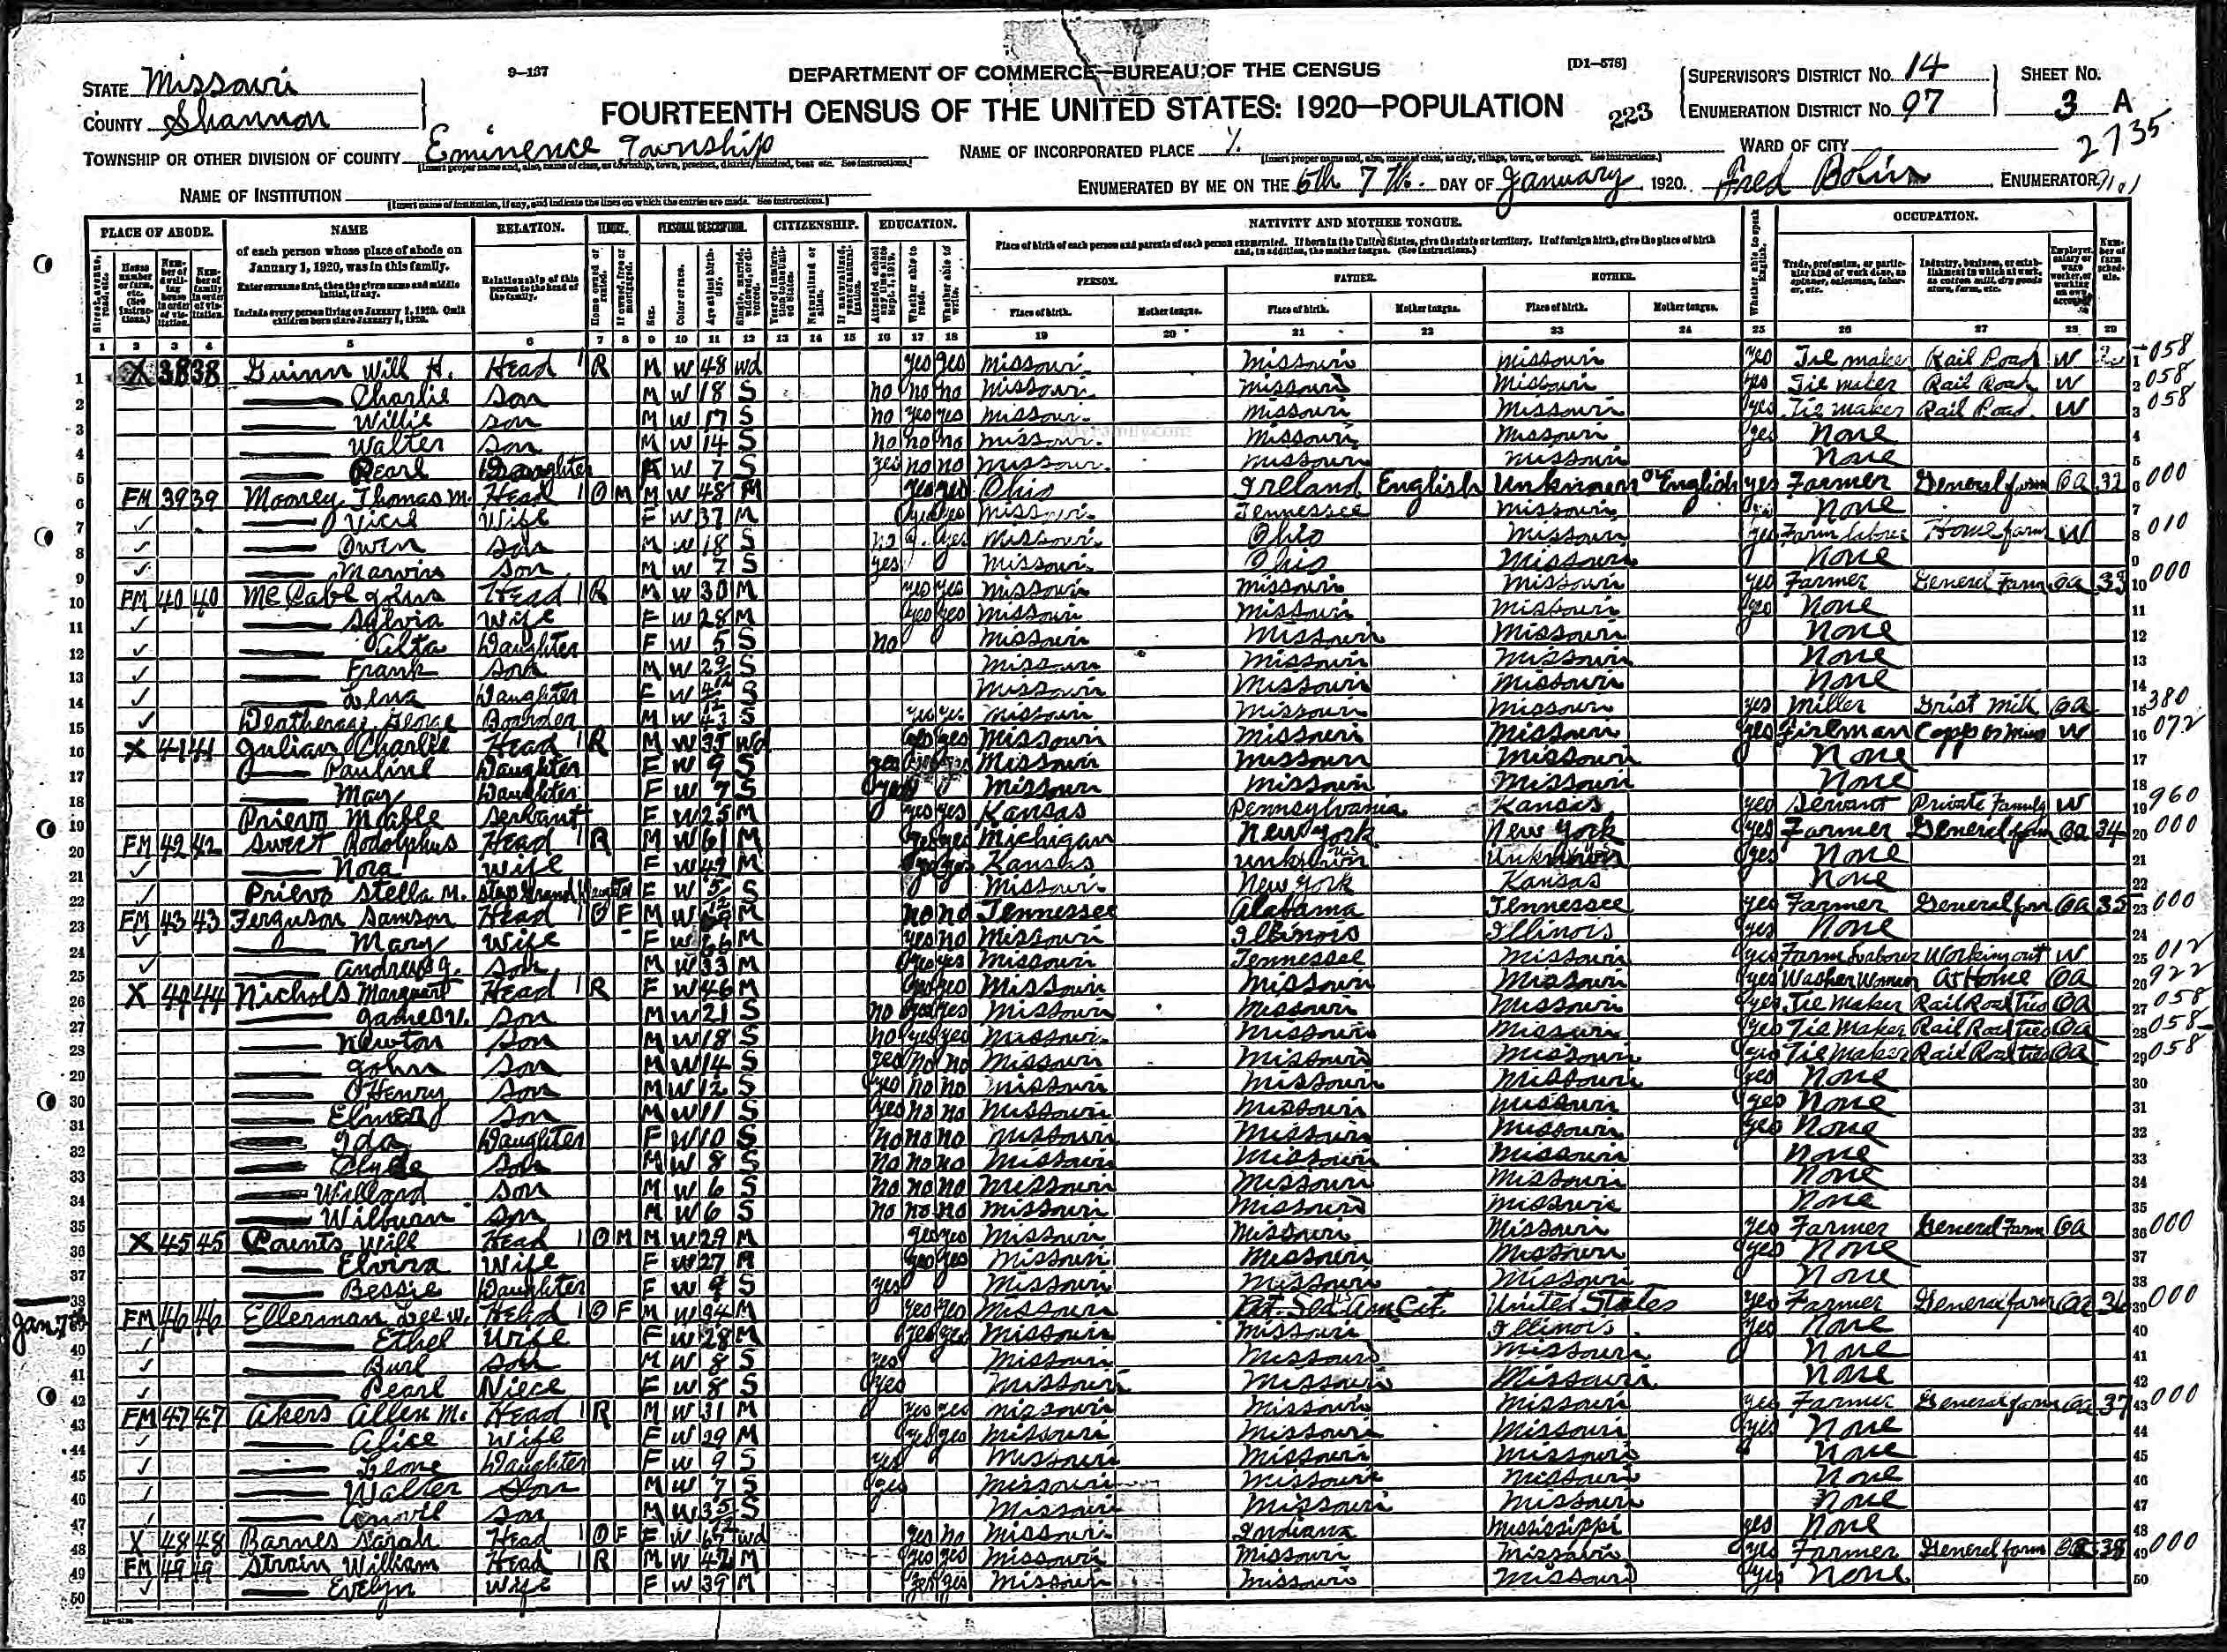 9-137
DEPARTMENT OF COMMERCE—BUREAU OF THE CENSUS
[D1-578]
STATE Missouri
SUPERVISOR'S DISTRICT No. 14 SHEET No.
COUNTY Shannon
FOURTEENTH CENSUS OF THE UNITED STATES: 1920—POPULATION
223
ENUMERATION DISTRICT No. 97 3 A
2735
TOWNSHIP OR OTHER DIVISION OF COUNTY Eminence Township NAME OF INCORPORATED PLACE WARD OF CITY
NAME OF INSTITUTION ENUMERATED BY ME ON THE 6th 7th DAY OF January, 1920. Fred Bolin ENUMERATOR
PLACE OF ABODE. NAME RELATION. TENURE. PERSONAL DESCRIPTION. CITIZENSHIP. EDUCATION. NATIVITY AND MOTHER TONGUE. OCCUPATION.
of each person whose place of abode on January 1, 1920, was in this family.
Enter surname first, then the given name and middle initial, if any.
Include every person living on January 1, 1920. Omit children born since January 1, 1920.
Relationship of this person to the head of the family.
Place of birth of each person and parents of each person enumerated. If born in the United States, give the state or territory. If of foreign birth, give the place of birth and, in addition, the mother tongue. (See instructions.)
PERSON. FATHER. MOTHER.
Place of birth. Mother tongue. Place of birth. Mother tongue. Place of birth. Mother tongue.
1 2 3 4 5 6 7 8 9 10 11 12 13 14 15 16 17 18 19 20 21 22 23 24 25 26 27 28 29
1 X 38 38 Guinn Will H. Head R M W 48 Wd yes yes Missouri Missouri Missouri yes Tie maker Rail Road W 058
2 Charlie Son M W 18 S no no no Missouri Missouri Missouri yes Tie maker Rail Road W 058
3 Willie Son M W 17 S no yes yes Missouri Missouri Missouri yes Tie maker Rail Road W 058
4 Walter Son M W 14 S no no no Missouri Missouri Missouri yes None
5 Pearl Daughter F W 7 S yes no no Missouri Missouri Missouri None
6 FM 39 39 Mooney Thomas M. Head O M M W 48 M yes yes Ohio Ireland English Unknown English yes Farmer General farm OA 32 000
7 Wife F W 37 M yes yes Missouri Tennessee Missouri None
8 Owen Son M W 18 S no yes Missouri Ohio Missouri yes Farm laborer Home farm W 010
9 Marvin Son M W 7 S yes Missouri Ohio Missouri None
10 FM 40 40 McCabe John Head R M W 30 M yes yes Missouri Missouri Missouri yes Farmer General Farm OA 33 000
11 Sylvia Wife F W 28 M yes yes Missouri Missouri Missouri yes None
12 Alta Daughter F W 5 S no Missouri Missouri Missouri None
13 Frank Son M W S Missouri Missouri Missouri None
14 Lena Daughter F W S Missouri Missouri Missouri None
15 George Boarder M W 43 S yes yes Missouri Missouri Missouri yes Miller Grist Mill OA 380
16 X 41 41 Julian Charlie Head R M W 35 Wd yes yes Missouri Missouri Missouri yes Fireman Copper Mine W 072
17 Pauline Daughter F W 9 S yes Missouri Missouri Missouri None
18 May Daughter F W 7 S yes Missouri Missouri Missouri None
19 Prievo Mable Servant F W 25 M yes yes Kansas Pennsylvania Kansas yes Servant Private Family W 960
20 FM 42 42 Sweet Rodolphus Head R M W 61 M yes yes Michigan New York New York yes Farmer General farm OA 34 000
21 Nora Wife F W 49 M yes yes Kansas Unknown Unknown yes None
22 Prievo Stella M. Step Grand Daughter F W S Missouri New York Kansas None
23 FM 43 43 Ferguson Samson Head O F M W M no no Tennessee Alabama Tennessee yes Farmer General farm OA 35 000
24 Mary Wife F W 66 M yes no Missouri Illinois Illinois yes None
25 Andrew J. Son M W 33 M yes yes Missouri Tennessee Missouri yes Farm Labourer Working out W 012
26 X 44 44 Nichols Margaret Head R F W 46 M yes yes Missouri Missouri Missouri yes Washer Woman At Home OA 922
27 James V. Son M W 21 S no yes yes Missouri Missouri Missouri yes Tie Maker Rail Road Ties OA 058
28 Newton Son M W 18 S no yes yes Missouri Missouri Missouri yes Tie Maker Rail Road ties OA 058
29 John Son M W 14 S yes no no Missouri Missouri Missouri yes Tie Maker Rail Road ties OA 058
30 Henry Son M W 12 S yes no no Missouri Missouri Missouri yes None
31 Elmer Son M W 11 S yes no no Missouri Missouri Missouri yes None
32 Ida Daughter F W 10 S no no no Missouri Missouri Missouri yes None
33 Clyde Son M W 8 S no no no Missouri Missouri Missouri None
34 Willard Son M W 6 S no no no Missouri Missouri Missouri None
35 Wilburn Son M W 6 S no no no Missouri Missouri Missouri None
36 X 45 45 Counts Will Head O M M W 29 M yes yes Missouri Missouri Missouri yes Farmer General Farm OA 000
37 Elvira Wife F W 27 M yes yes Missouri Missouri Missouri yes None
38 Bessie Daughter F W 9 S yes Missouri Missouri Missouri None
Jan 7th
39 FM 46 46 Ellerman Lee W. Head O F M W 34 M yes yes Missouri United States yes Farmer General farm OA 36 000
40 Ethel Wife F W 28 M yes yes Missouri Missouri Illinois yes None
41 Burl Son M W 8 S yes Missouri Missouri Missouri None
42 Pearl Niece F W 8 S yes Missouri Missouri Missouri None
43 FM 47 47 Akers Allen M. Head R M W 31 M yes yes Missouri Missouri Missouri yes Farmer General farm OA 37 000
44 Alice Wife F W 29 M yes yes Missouri Missouri Missouri yes None
45 Leone Daughter F W 9 S yes Missouri Missouri Missouri None
46 Walter Son M W 7 S yes Missouri Missouri Missouri None
47 Son M W S Missouri Missouri Missouri None
48 X 48 48 Barnes Sarah Head O F F W Wd yes no Missouri Indiana Mississippi yes None
49 FM 49 49 Strain William Head R M W 47 M yes yes Missouri Missouri Missouri yes Farmer General farm OA 38 000
50 Evelyn Wife F W 39 M yes yes Missouri Missouri Missouri yes None